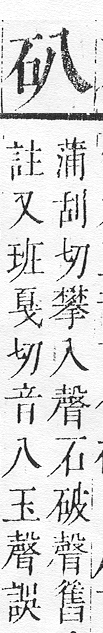 矵
蒲刮切攀入聲石破聲舊
註又班戛切音八玉聲誤